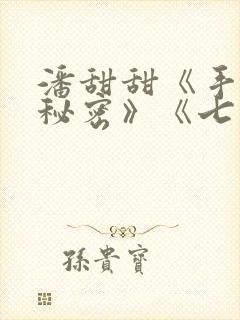 潘甜甜《手
秘密》《七
孫貴寶